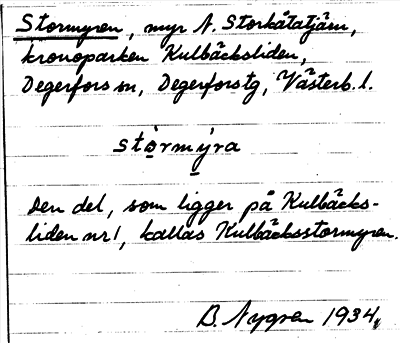 Stormyren, myr N. Storkåtatjärn,
kronoparken Kulbäcksliden,
Degerfors sn, Degerforstg, Västerb. l.
stòrmýra
Den del, som ligger på Kulbäcks-
liden nr 1, kallas Kulbäcksstormyren.
B. Nygren 1934.